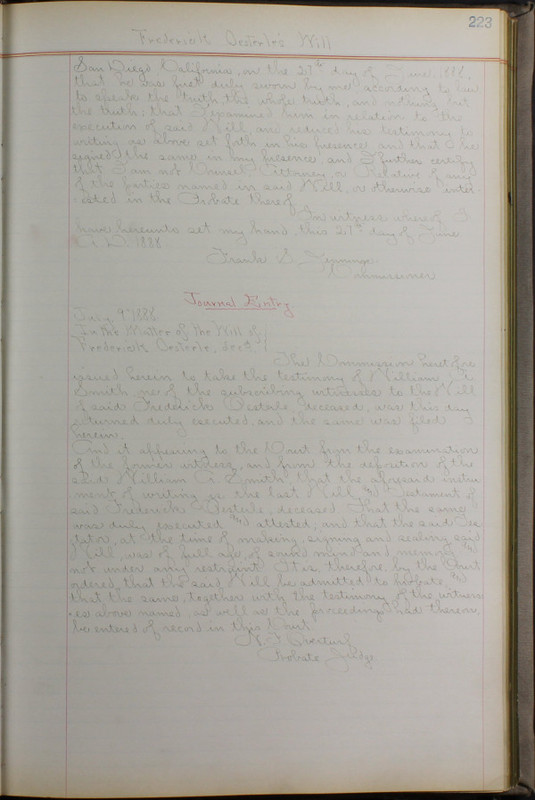 223
Frederick Oesterle's Will
San Diego California, on the 27th day of June, 1888,
that he was first duly sworn by me, according to law
to speak the truth, the whole truth, and nothing but
the truth; that I examined him in relation to the
execution of said Will and reduced his testimony to
writing as above set forth in his presence and that he
signed the same in my presence, and I further certify
that I am not Counsel, Attorney, or Relative of any
of the parties named in said Will, or otherwise inter-
ested in the Probate thereof.
In witness whereof I
have hereunto set my hand, this 27th day of June
A. D. 1888
Frank Jennings
Commissioner
Journal Entry
July 9" 1888
In the Matter of the Will of
Frederick Oesterle, decd
The Commission heretofore
issued herein to take the testimony of William A.
Smith one of the subscribing witnesses to the Will
of said Frederick Oesterle, deceased, was this day
returned duly executed, and the same was filed
herein.
And it appearing to the Court from the examination
of the former witness, and from the deposition of the
said William A. Smith, that the aforesaid instru
ment of writing is the last Will and Testament of
said Frederick Oesterle, deceased, That the same
was duly executed and attested; and that the said Tes
tator, at the time of making, signing and sealing said
Will, was of full age, of sound mind and memory and
not under any restraint. It is, therefore, by the Court
ordered, that the said Will be admitted to probate, and
that the same, together with the testimony of the witness
es above named, as well as the proceedings had thereon,
be entered of record in this Court
Probate Judge